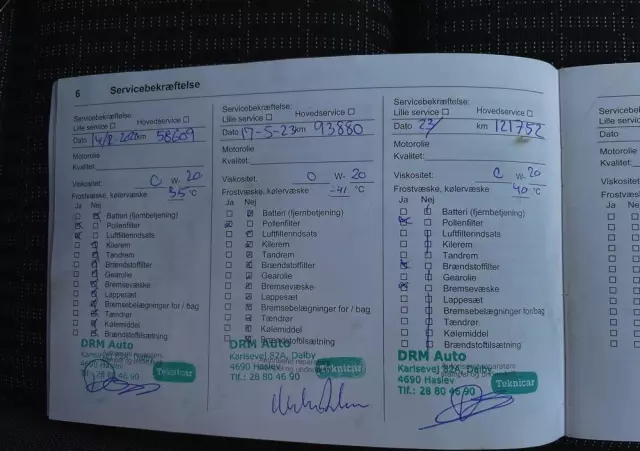 6 Servicebekræftelse
Servicebekræftelse:
Lille service Hovedservice
Dato km 58609
Motorolie
Kvalitet:
Viskositet: 0 W- 20
Frostvæske, kølervæske
35 °C
Ja Nej
Batteri (fjernbetjening)
Pollenfilter
Luftfilterindsats
Kilerem
Tandrem
Brændstoffilter
Gearolie
Bremsevæske
Lappesæt
Bremsebelægninger for / bag
Tændrør
Kølemiddel
Brændstofblsætning
DRM Auto
4690 Haslev
Tlf.: 28 80 46 90
Teknicar
Servicebekræftelse:
Lille service Hovedservice
Dato 17-5-23 km 93880
Motorolie
Kvalitet:
Viskositet: 0 W- 20
Frostvæske, kølervæske
-41 °C
Ja Nej
Batteri (fjernbetjening)
Pollenfilter
Luftfilterindsats
Kilerem
Tandrem
Brændstoffilter
Gearolie
Bremsevæske
Lappesæt
Bremsebelægninger for / bag
Tændrør
Kølemiddel
Brændstofblsætning
DRM Auto
Karlsevej 82A, Dalby
4690 Haslev
Tlf.: 28 80 46 90
Teknicar
Servicebekræftelse:
Lille service Hovedservice
Dato 23/ km 121752
Motorolie
Kvalitet:
Viskositet: 0 W- 20
Frostvæske, kølervæske
40 °C
Ja Nej
Batteri (fjernbetjening)
Pollenfilter
Luftfilterindsats
Kilerem
Tandrem
Brændstoffilter
Gearolie
Bremsevæske
Lappesæt
Bremsebelægninger for/bag
Tændrør
Kølemiddel
Brændstofblsætning
DRM Auto
Karlsevej 82A, Dalby
4690 Haslev
Tlf.: 28 80 46 90
Teknicar
Servicebekræftelse:
Lille service
Dato
Motorolie
Kvalitet:
Viskositet:
Frostvæske, kølervæske
Ja Nej